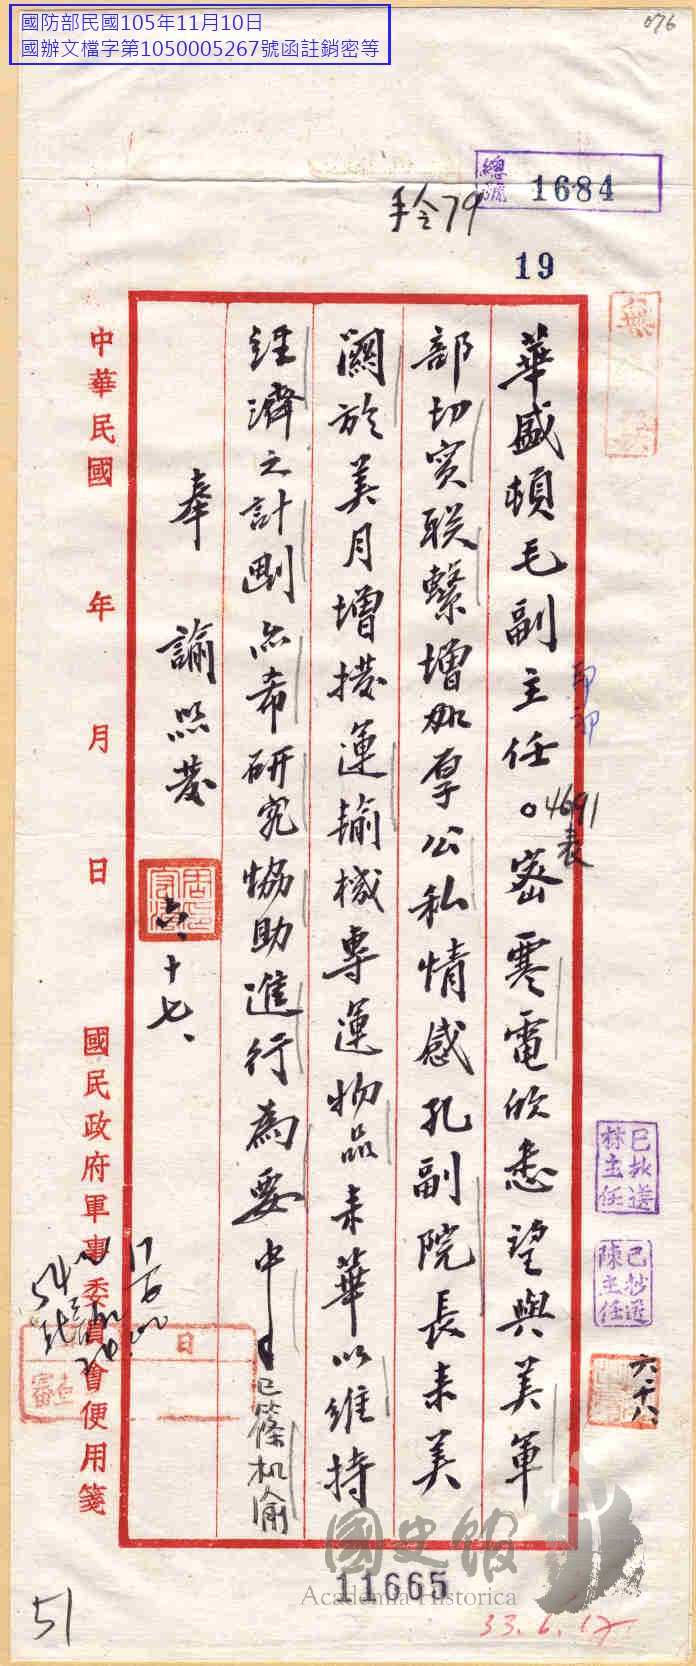 國防部民國105年11月10日
國辦文檔字第1050005267號函註銷密等
076
總流 1684
手令79
19
華盛頓毛副主任。密寒電欣悉望與美軍
4691
表
部切实联繫增加厚公私情感孔副院長未美
関於美月增撥運输械專運物品未華以維持
經濟之計劃亦希研究協助進行為要中
巳篠机渝
奉諭照發
六、十七、
中華民國 年 月 日
國民政府軍事委員會便用箋
已抄送林主任
已抄送陳主任
六、十八、
日
審查
國史館
Academia Historica
11665
33.6.17
51